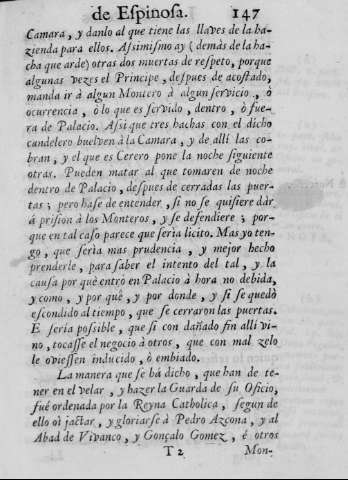 de Espinosa. 147
Camara, y danlo al que tiene las llaves de la ha-
zienda para ellos. Assimismo ay (demàs de la ha-
cha que arde) otras dos muertas de respeto, porque
algunas vezes el Principe, despues de acostado,
manda ir à algun Montero à algun servicio, ò
ocurrencia, ò lo que es servido, dentro, ò fue-
ra de Palacio. Assi que tres hachas con el dicho
candelero buelven à la Camara, y de allí las co-
bran, y el que es Cerero pone la noche siguiente
otras. Pueden matar al que tomaren de noche
dentro de Palacio, despues de cerradas las puer-
tas; pero hase de entender, si no se quisiere dàr
à prision à los Monteros, y se defendiere; por-
que en tal caso parece que serìa licito. Mas yo ten-
go, que serìa mas prudencia, y mejor hecho
prenderle, para saber el intento del tal, y la
causa por què entrò en Palacio à hora no debida,
y como, y por què, y por donde, y si se quedò
escondido al tiempo, que se cerraron las puertas.
E serìa possible, que si con dañado fin alli vi-
no, tocasse el negocio à otros, que con mal zelo
le oviessen inducido, ò embiado.
La manera que se hà dicho, que han de te-
ner en el velar, y hazer la Guarda de su Oficio,
fuè ordenada por la Reyna Catholica, segun de
ello oì jactar, y gloriarse à Pedro Azcona, y al
Abad de Vivanco, y Gonçalo Gomez, é otros
T 2 Mon-